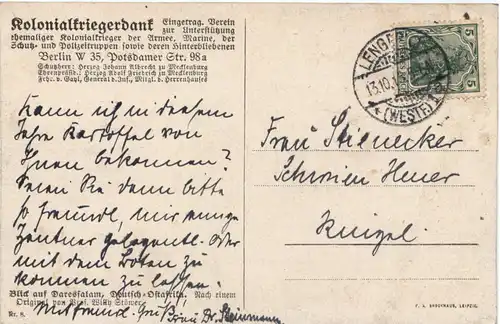 Kolonialkriegerdank Eingetrag. Verein
zur Unterstützung
ehemaliger Kolonialkrieger der Armee, Marine, der
Schutz- und Polizeitruppen sowie deren Hinterbliebenen
Berlin W 35, Potsdamer Str. 98a
Schutzherr: Herzog Johann Albrecht zu Mecklenburg
Ehrenpräsid.: Herzog Adolf Friedrich zu Mecklenburg
Frhr. v. Gayl, General d. Inf., Mitgl. d. Herrenhauses
LENGE
13.10.
(WESTF.)
5
5
Kann ich in diesem
Jahre Kartoffel von
Ihnen bekommen?
Seien Sie dann bitte
so freundl., mir einige
Zentner gelegentl. oder
mit dem Boten zu
kommen zu lassen.
Mit freundl. Gruß, Frau Dr. Steinmann
Frau Stienecker
Schwien Heuer
Ringel.
Blick auf Daressalam, Deutsch-Ostafrika. Nach einem
Original von Prof. Willy Stöwer.
Nr. 8.
F. A. BROCKHAUS, LEIPZIG.